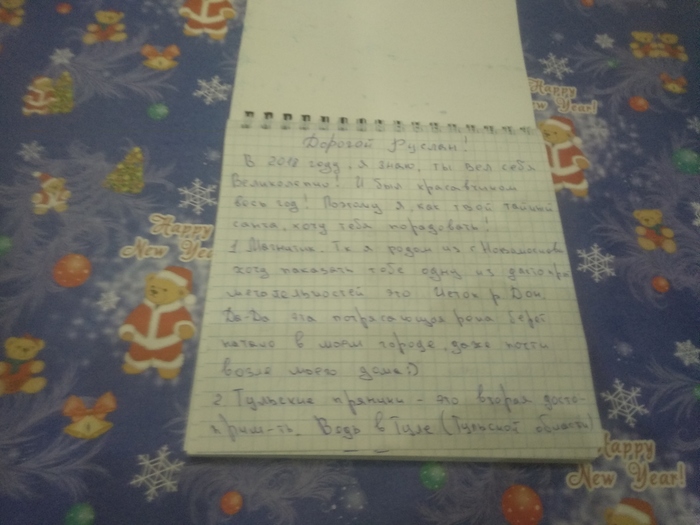 Дорогой Руслан!
В 2018 году, я знаю, ты вел себя
великолепно! И был красавчиком
весь год! Поэтому я, как твой тайный
санта, хочу тебя порадовать!
1. Магнитик. Тк я родом из г. Новомосковск
хочу показать тебе одну из достопри
мечательностей это Исток р. Дон.
Да-Да эта потрясающая река берет
начало в моем городе, даже почти
возле моего дома:)
2. Тульские пряники - это вторая досто-
прим-ть. Ведь в Туле (Тульской области)
Happy
New Year!
Happy
New Year!
Happy
New Year!